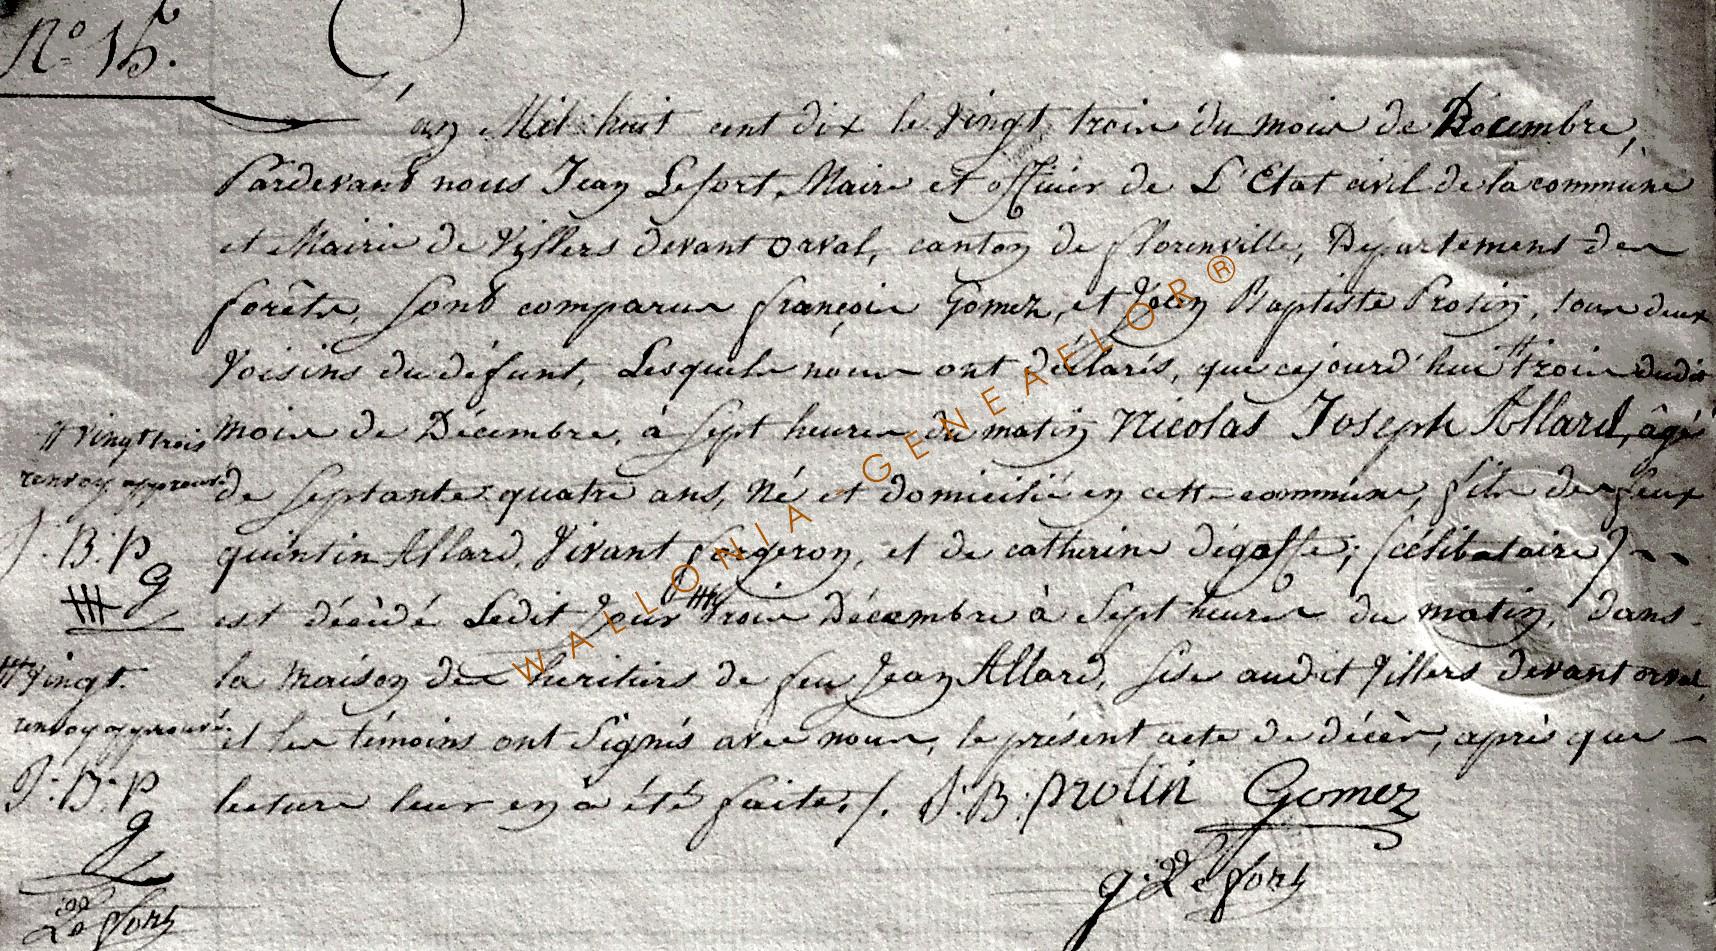 N.º 15.
L'an Mil huit cent dix le Vingt trois du mois de Décembre,
Pardevant nous Jean Lefort, Maire et officier de L'Etat civil de la commune
et Mairie de Villers devant orval, canton de florenville, Département des
forêts, sont comparus françois Gomez, et Jean Baptiste Protin, tous deux
Voisins du défunt, Lesquels nous ont déclarés, que cejourd'hui # trois dudit
mois de Décembre, à sept heures du matin Nicolas Joseph Allard, âgé
de septante quatre ans, Né et domicilié en cette commune, fils des feux
quintin Allard, Vivant forgeron, et de catherine dégoffe; (célibataire)
est décédé Ledit Jour ## trois Décembre à Sept heures du matin, dans
la Maison des héritiers de feu Jean Allard, sise audit Villers devant orval,
et les témoins ont Signés avec nous, le présent acte de décès, après que
lecture leur en a été faite./. J:B: protin Gomez
g: Lefort
# vingt trois
renvoy approuvé
J: B: P
g
## Vingt
renvoy approuvé
J: B: P
g
Lefort
WALLONIA GENEALOR ®